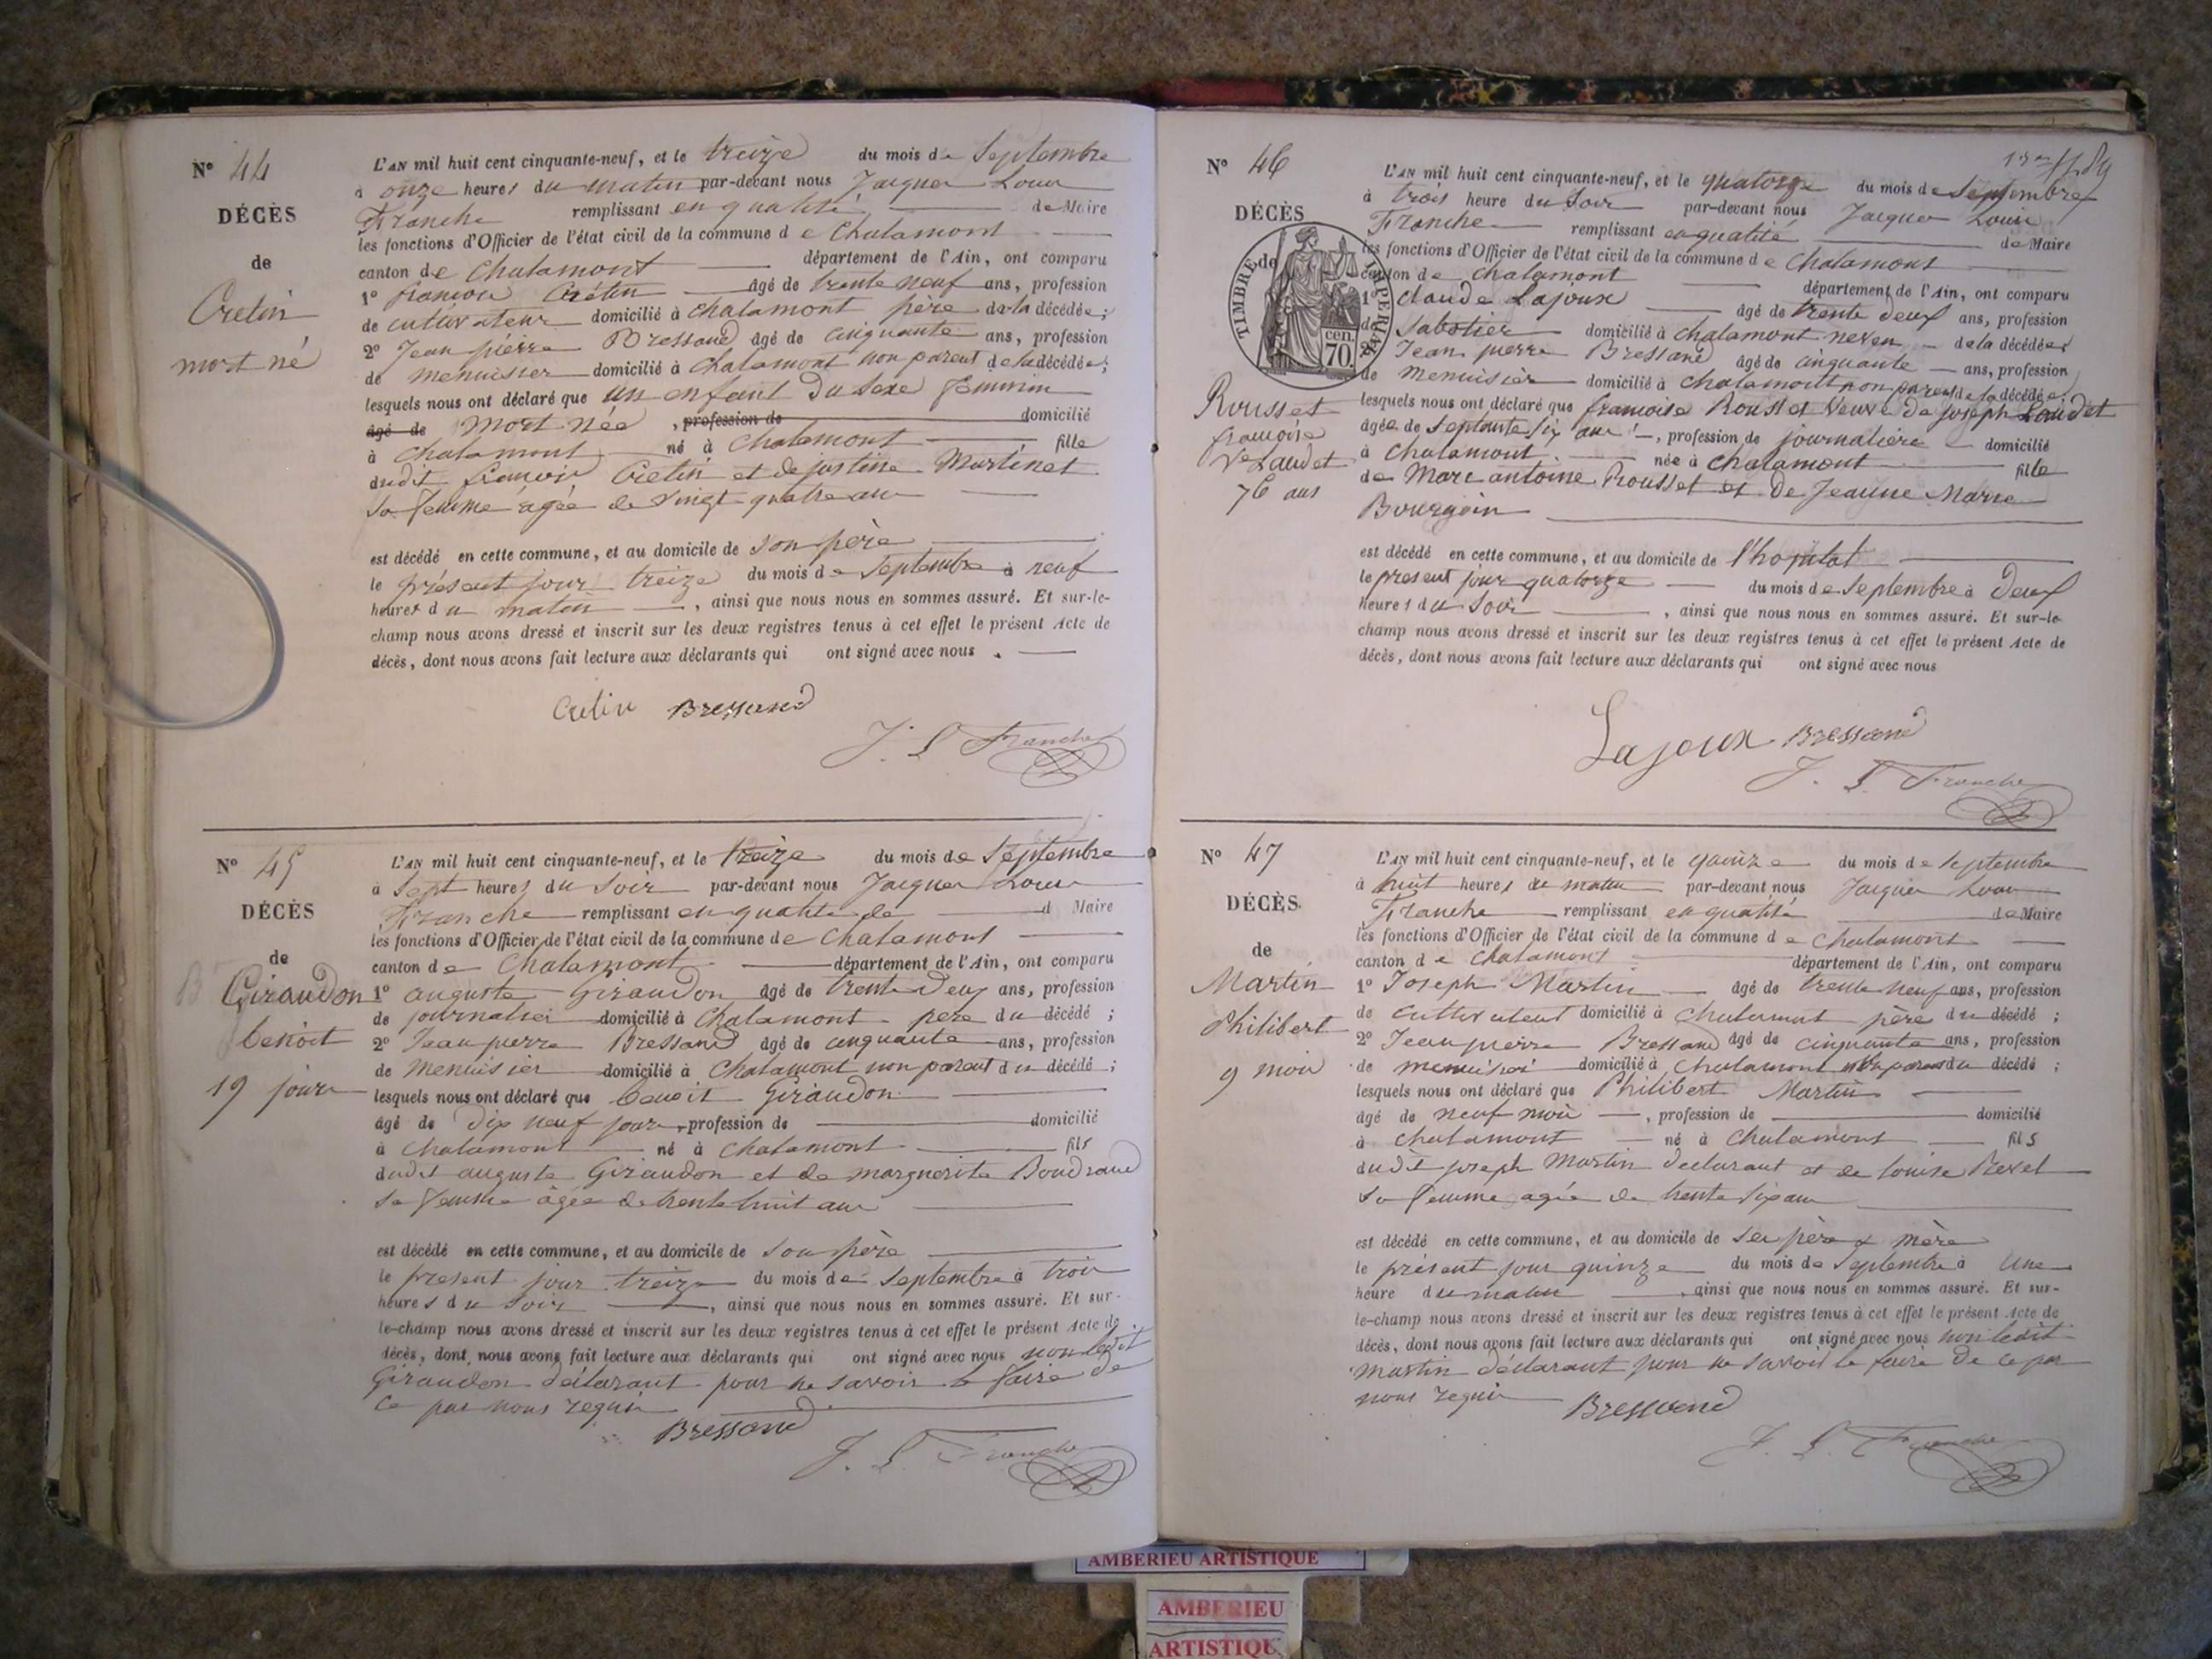 N° 44
DÉCÈS
de
Cretin
mort né
L'AN mil huit cent cinquante-neuf, et le treize du mois de Septembre
à onze heures du matin par-devant nous Jacques Louis
Franche remplissant en qualité de Maire
les fonctions d'Officier de l'état civil de la commune de Chalamont
canton de Chalamont département de l'Ain, ont comparu
1° françois Crétin âgé de trente neuf ans, profession
de cultivateur domicilié à Chalamont père de la décédée ;
2° Jean pierre Bressand âgé de cinquante ans, profession
de menuisier domicilié à Chalamont non parent de la décédée ;
lesquels nous ont déclaré que un enfant du sexe féminin
âgé de mort née , profession de domicilié
à Chalamont né à Chalamont fille
dudit françois Cretin et de justine Martinet
sa femme âgée de vingt quatre ans
est décédé en cette commune, et au domicile de son père
le présent jour treize du mois de Septembre à neuf
heures du matin , ainsi que nous nous en sommes assuré. Et sur-le-
champ nous avons dressé et inscrit sur les deux registres tenus à cet effet le présent Acte de
décès, dont nous avons fait lecture aux déclarants qui ont signé avec nous .
Cretin Bressand
J. L Franche
N° 45
DÉCÈS
de
Giraudon
benoit
19 jours
L'AN mil huit cent cinquante-neuf, et le treize du mois de Septembre
à Sept heures du Soir par-devant nous Jacques Louis
Franche remplissant en qualité de d Maire
les fonctions d'Officier de l'état civil de la commune de Chalamont
canton de Chalamont département de l'Ain, ont comparu
1° auguste Giraudon âgé de trente deux ans, profession
de journalier domicilié à Chalamont père du décédé ;
2° Jean pierre Bressand âgé de cinquante ans, profession
de Menuisier domicilié à Chalamont non parent du décédé ;
lesquels nous ont déclaré que benoit Giraudon
âgé de Dix neuf jours, profession de domicilié
à Chalamont né à Chalamont fils
dudit auguste Giraudon et de marguerite Boudrand
sa femme âgée de trente huit ans
est décédé en cette commune, et au domicile de son père
le présent jour treize du mois de Septembre à trois
heures du soir , ainsi que nous nous en sommes assuré. Et sur-
le-champ nous avons dressé et inscrit sur les deux registres tenus à cet effet le présent Acte de
décès, dont nous avons fait lecture aux déclarants qui ont signé avec nous non ledit
Giraudon déclarant pour ne savoir le faire de
ce par nous requis
Bressand
J. L Franche
N° 46
DÉCÈS
de
TIMBRE IMPERIAL
70 cen.
Rousset
françoise
Ve Laudet
76 ans
L'AN mil huit cent cinquante-neuf, et le quatorze du mois de Septembre
à trois heure du Soir par-devant nous Jacques Louis
Franche remplissant en qualité de Maire
les fonctions d'Officier de l'état civil de la commune de Chalamont
canton de Chalamont département de l'Ain, ont comparu
1° Claude Lajoux âgé de trente deux ans, profession
de Sabotier domicilié à Chalamont neveu de la décédée
2° Jean pierre Bressand âgé de cinquante ans, profession
de menuisier domicilié à Chalamont non parent de la décédée
lesquels nous ont déclaré que françoise Rousset Veuve de joseph Laudet
âgée de septante six ans , profession de journalière domicilié
à Chalamont née à Chalamont fille
de Marc antoine Rousset et De Jeanne Marie
Bourgoin
est décédé en cette commune, et au domicile de l'hopital
le présent jour quatorze du mois de Septembre à deux
heures du Soir , ainsi que nous nous en sommes assuré. Et sur-le-
champ nous avons dressé et inscrit sur les deux registres tenus à cet effet le présent Acte de
décès, dont nous avons fait lecture aux déclarants qui ont signé avec nous
Lajoux Bressand
J. L Franche
N° 47
DÉCÈS
de
Martin
Philibert
9 mois
L'AN mil huit cent cinquante-neuf, et le quinze du mois de Septembre
à huit heures du matin par-devant nous Jacques Louis
Franche remplissant en qualité de Maire
les fonctions d'Officier de l'état civil de la commune de Chalamont
canton de Chalamont département de l'Ain, ont comparu
1° Joseph Martin âgé de trente neuf ans, profession
de cultivateur domicilié à Chalamont père du décédé ;
2° Jean pierre Bressand âgé de cinquante ans, profession
de menuisier domicilié à Chalamont non parent du décédé ;
lesquels nous ont déclaré que Philibert Martin
âgé de neuf mois , profession de domicilié
à Chalamont né à Chalamont fils
dudit joseph Martin déclarant et de louise Revel
sa femme agée de trente six ans
est décédé en cette commune, et au domicile de ses père & mère
le présent jour quinze du mois de Septembre à Une
heure du matin , ainsi que nous nous en sommes assuré. Et sur-
le-champ nous avons dressé et inscrit sur les deux registres tenus à cet effet le présent Acte de
décès, dont nous avons fait lecture aux déclarants qui ont signé avec nous non ledit
Martin déclarant pour ne savoir le faire de ce par
nous requis
Bressand
J. L. Franche
AMBERIEU ARTISTIQUE
AMBERIEU
ARTISTIQUE